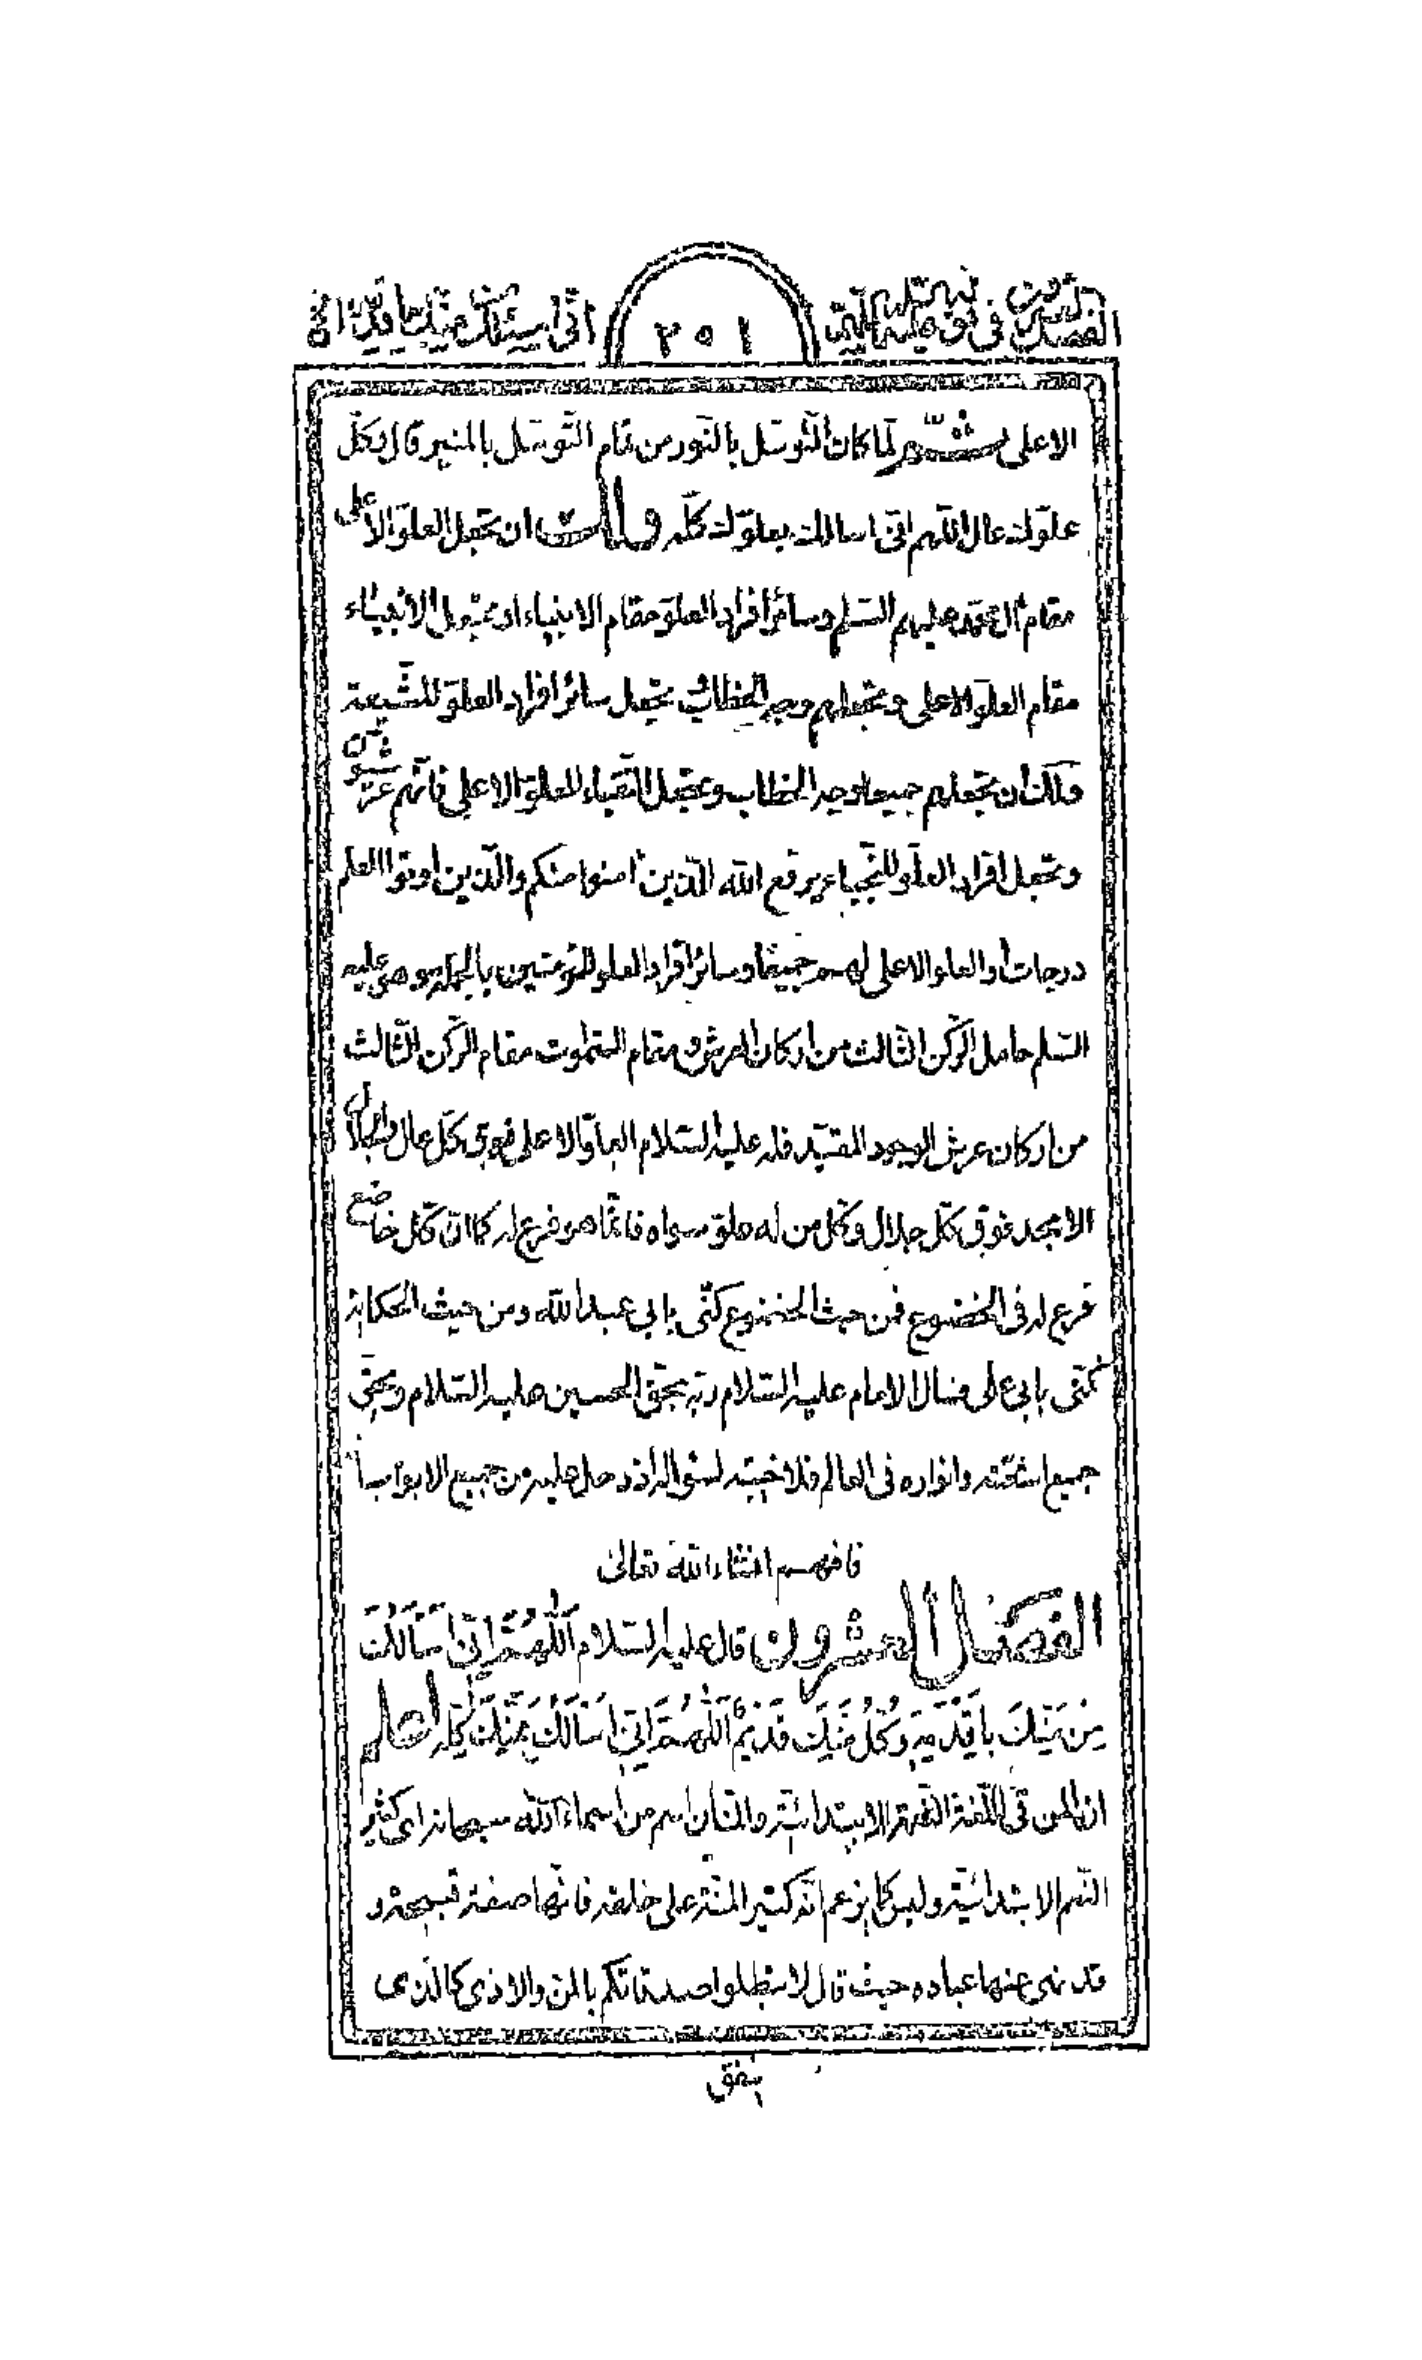 الفصل العشرون فى قوله عليه السلام اللهم
٢٥١
انى اسئلك من منك باقدمه الخ
الاعلى ثمّ لمّا كان التّوسّل بالنّور من تمام التّوسّل بالمنير قال وكلّ
علوّك عال اللّهم انّى اسالك بعلوّك كلّه ولك ان تجعل العلوّ الاعلى
مقام ال محمّد عليهم السّلم وسائر افراد العلوّ مقام الانبياء او تجعل الانبياء
مقام العلوّ الاعلى وتجعلهم وجه الخطاب تجعل سائر افراد العلوّ للشّيعة
ولك ان تجعلهم جميعا وجه الخطاب وتجعل النّقباء للعلوّ الاعلى فانّهم
وتجعل افراد العلوّ للنّجباء يرفع الله الّذين امنوا منكم والّذين اوتوا العلم
درجات او العلو الاعلى لهم جميعًا وسائر افراد العلو للمؤمنين بالجملة هو عليه
السّلم حامل الرّكن الثّالث من اركان العرش و مقام السّموت مقام الرّكن الثّالث
من اركان عرش الوجود المقيّد فله عليه السّلام العلوّ الاعلى فوق كلّ عال والجلال
الامجد فوق كلّ جلال وكلّ من له علوّ سواه فانّما هو فرع له كما انّ كلّ خاضع
فرع له فى الخضوع فمن حيث الخضوع كنّى بابى عبد الله ومن حيث الحكاية
كنّى بابى على فسال الامام عليه السّلام ربّه بحقّ الحسين عليه السّلام وبحقّ
جميع اشعّته وانواره فى العالم فلا خيبة لسؤاله اذ دخل عليه من جميع الابواب
فافهم انشاء الله تعالى
الفصل العشرون قال عليه السّلام اَللّهُمَّ اِنّى اَسْاَلُكَ
مِنْ مَنِّكَ بِاَقْدَمِهِ وَكُلُّ مَنِّكَ قَديمٌ اَللّهُمَّ اِنّى اَسْاَلُكَ بِمَنِّكَ كُلِّهِ اعلم
ان المن فى اللّغة النّعمة الابتدائيّة والمنّان اسم من اسماء الله سبحانه اى كثير
النّعم الابتدائيّة وليس كما يزعم انّه كثير المنّة على خلقه فانّها صفة قبيحة و
قد نهى عنها عباده حيث قال لا تبطلوا صدقاتكم بالمن والاذى كالّذى
ينفق